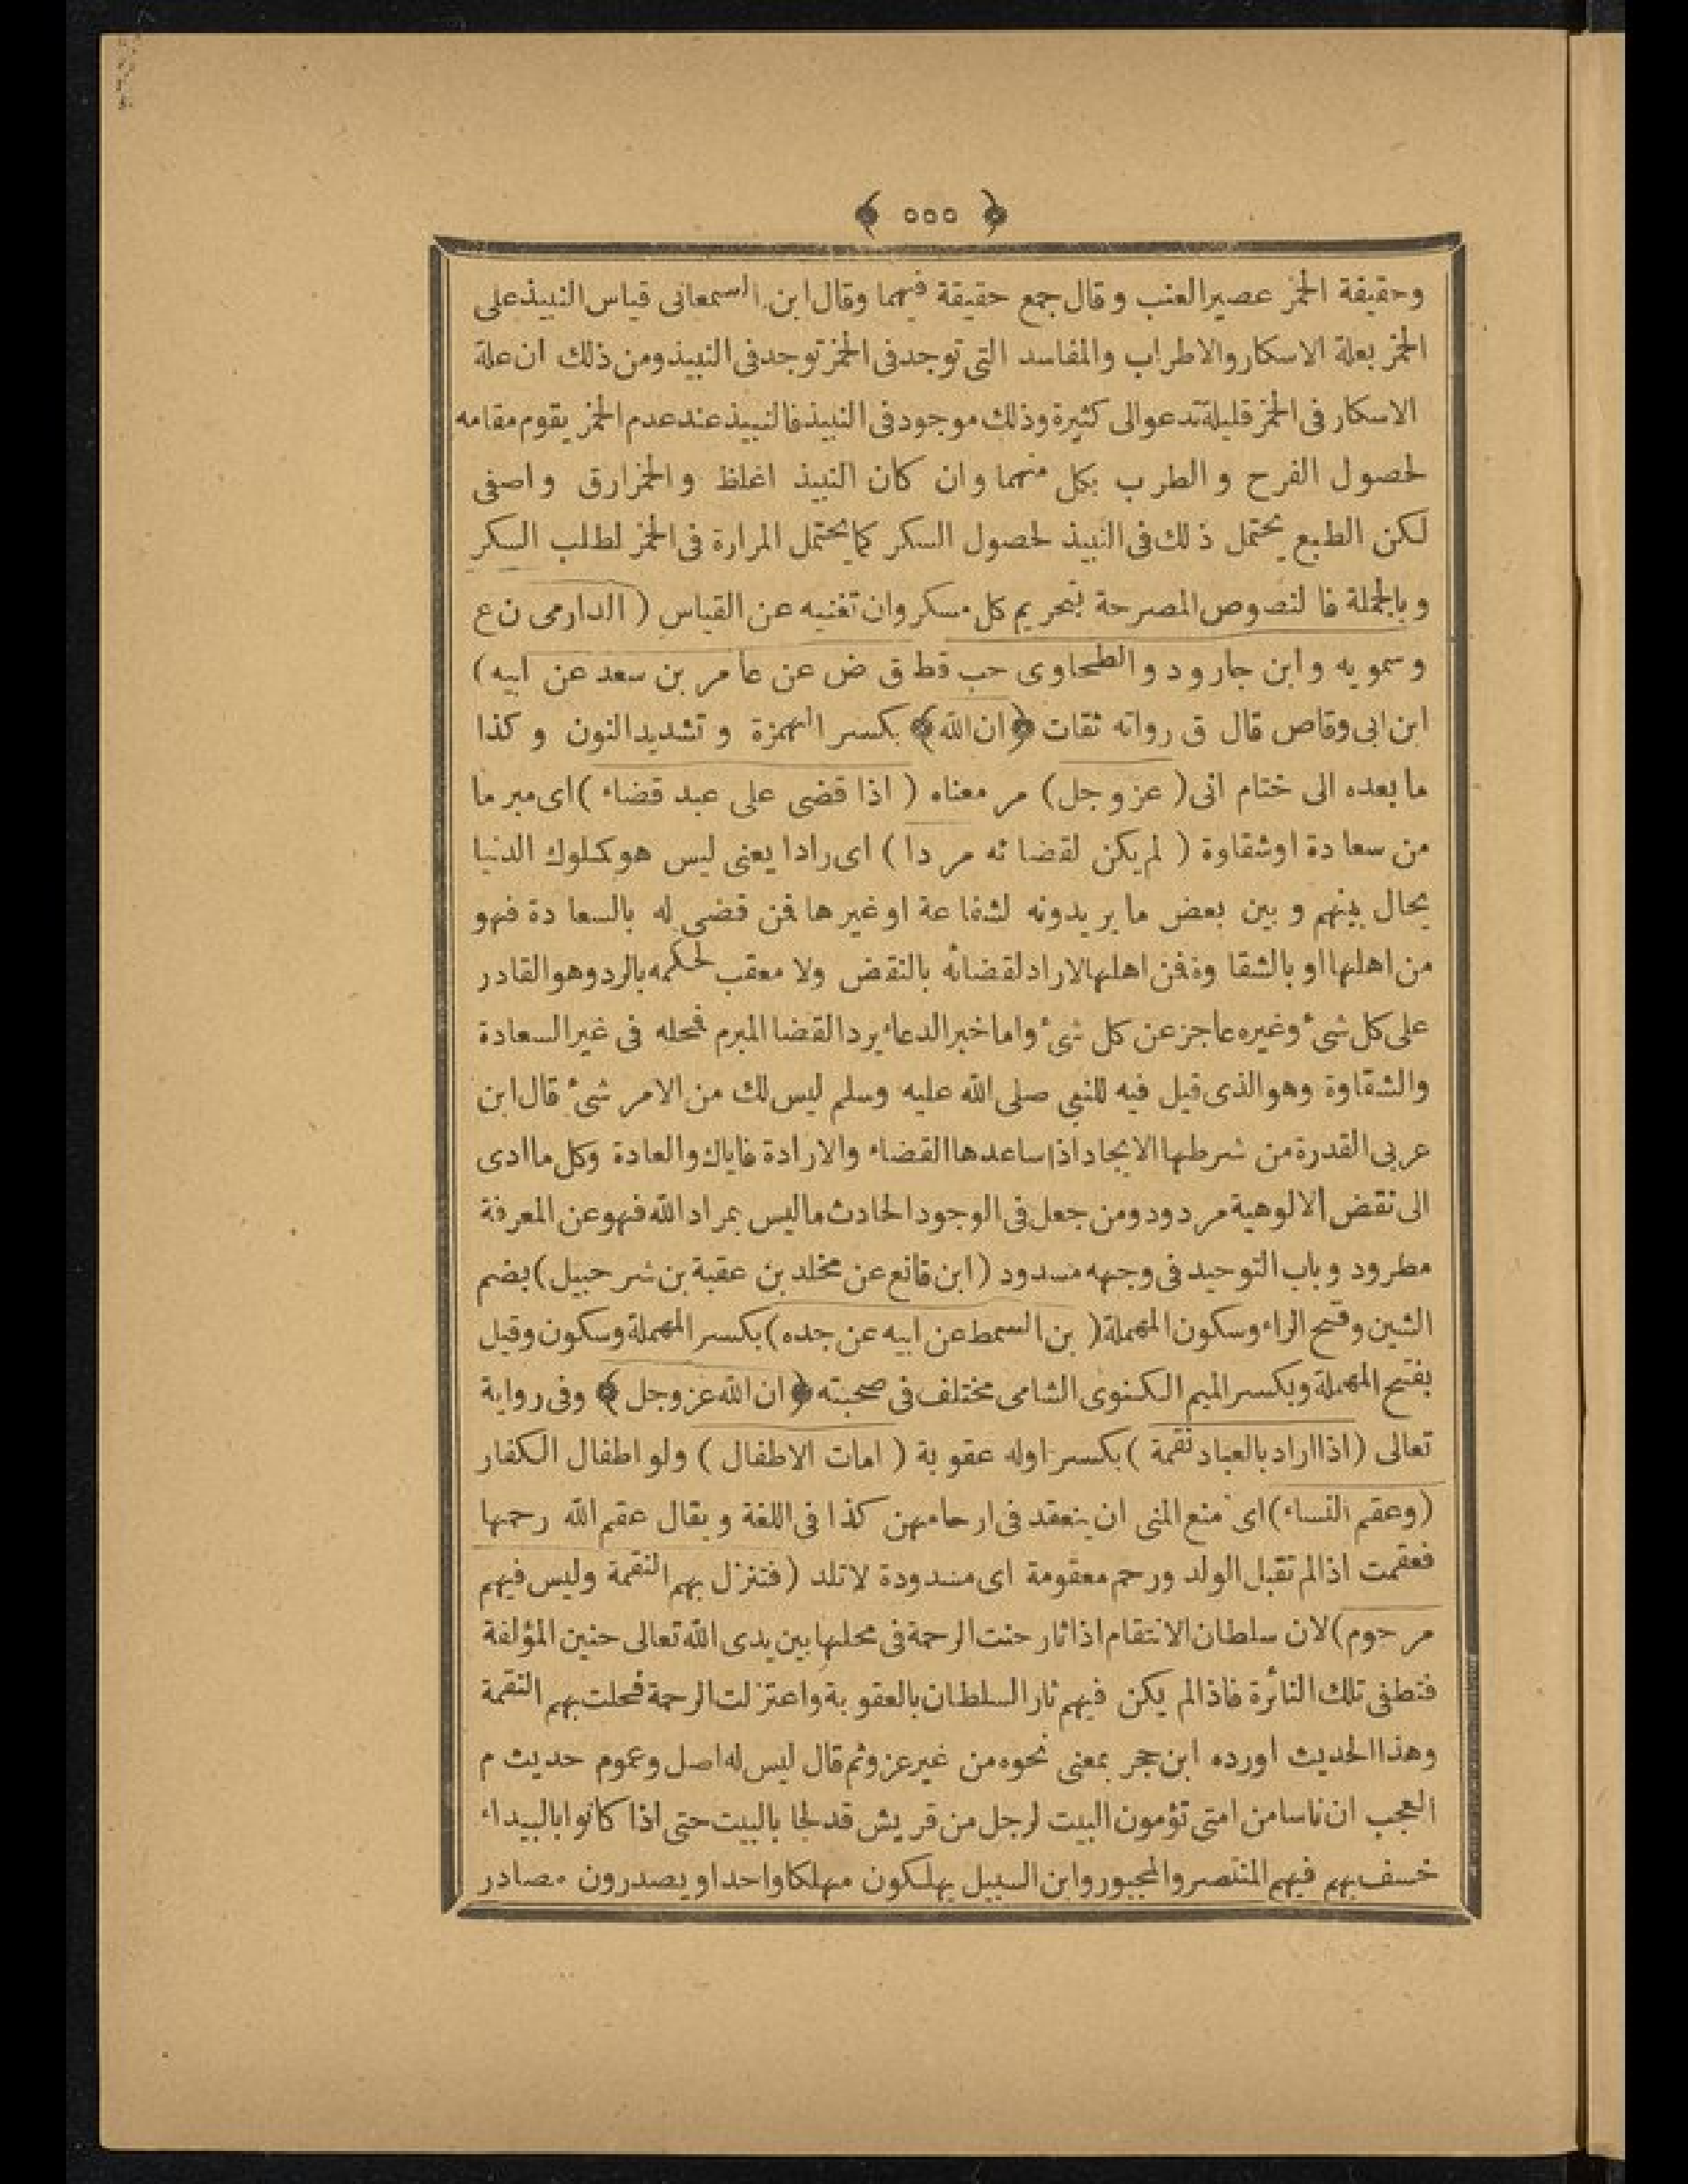 ﴿ ٥٥٥ ﴾
وحقيقة الخمر عصير العنب وقال جمع حقيقة فيهما وقال ابن السمعانى قياس النبيذ على
الخمر بعلة الاسكار والاطراب والمفاسد التى توجد فى الخمر توجد فى النبيذ ومن ذلك ان علة
الاسكار فى الخمر قليلة تدعو الى كثيرة وذلك موجود فى النبيذ فالنبيذ عند عدم الخمر يقوم مقامه
لحصول الفرح والطرب بكل منهما وان كان النبيذ اغلظ والخمر ارق واصفى
لكن الطبع يحتمل ذلك فى النبيذ لحصول السكر كما يحتمل المرارة فى الخمر لطلب السكر
وبالجملة فالنصوص المصرحة بتحريم كل مسكر وان تغنيه عن القياس (الدارمى ن ع
وسمويه وابن جارود والطحاوى حب قط ق ض عن عامر بن سعد عن ابيه)
ابن ابى وقاص قال ق رواته ثقات ﴿ان الله﴾ بكسر الهمزة وتشديد النون وكذا
ما بعده الى ختام انى (عز وجل) مر معناه (اذا قضى على عبد قضاء) اى مبرما
من سعادة او شقاوة (لم يكن لقضائه مردا) اى رادا يعنى ليس هو كملوك الدنيا
يحال بينهم وبين بعض ما يريدونه لشفاعة او غيرها فمن قضى له بالسعادة فهو
من اهلها او بالشقاوة فمن اهلها لا راد لقضائه بالنقض ولا معقب لحكمه بالرد وهو القادر
على كل شئ وغيره عاجز عن كل شئ واما خبر الدعاء يرد القضا المبرم فمحله فى غير السعادة
والشقاوة وهو الذى قيل فيه للنبى صلى الله عليه وسلم ليس لك من الامر شئ قال ابن
عربى القدرة من شرطها الايجاد اذا ساعدها القضاء والارادة فاياك والعادة وكل ما ادى
الى نقض الالوهية مردود ومن جعل فى الوجود الحادث ما ليس بمراد الله فهو عن المعرفة
مطرود وباب التوحيد فى وجهه مسدود (ابن قانع عن مخلد بن عقبة بن شرحبيل) بضم
الشين وفتح الراء وسكون المهملة (بن السمط عن ابيه عن جده) بكسر المهملة وسكون وقيل
بفتح المهملة وبكسر الميم الكنوى الشامى مختلف فى صحبته ﴿ان الله عز وجل﴾ وفى رواية
تعالى (اذا اراد بالعباد نقمة) بكسر اوله عقوبة (امات الاطفال) ولو اطفال الكفار
(وعقم النساء) اى منع المنى ان ينعقد فى ارحامهن كذا فى اللغة ويقال عقم الله رحمها
فعقمت اذا لم تقبل الولد ورحم معقومة اى مسدودة لا تلد (فتنزل بهم النقمة وليس فيهم
مرحوم) لان سلطان الانتقام اذا ثار حنت الرحمة فى محلها بين يدى الله تعالى حنين المؤلفة
فتطفى تلك النائرة فاذا لم يكن فيهم ثار السلطان بالعقوبة واعتزلت الرحمة فحلت بهم النقمة
وهذا الحديث اورده ابن حجر بمعنى نحوه من غير عزو ثم قال ليس له اصل وعموم حديث م
العجب ان ناسا من امتى تؤمون البيت لرجل من قريش قد لجا بالبيت حتى اذا كانوا بالبيداء
خسف بهم فيهم المنتصر والمجبور وابن السبيل يهلكون مهلكا واحدا ويصدرون مصادر